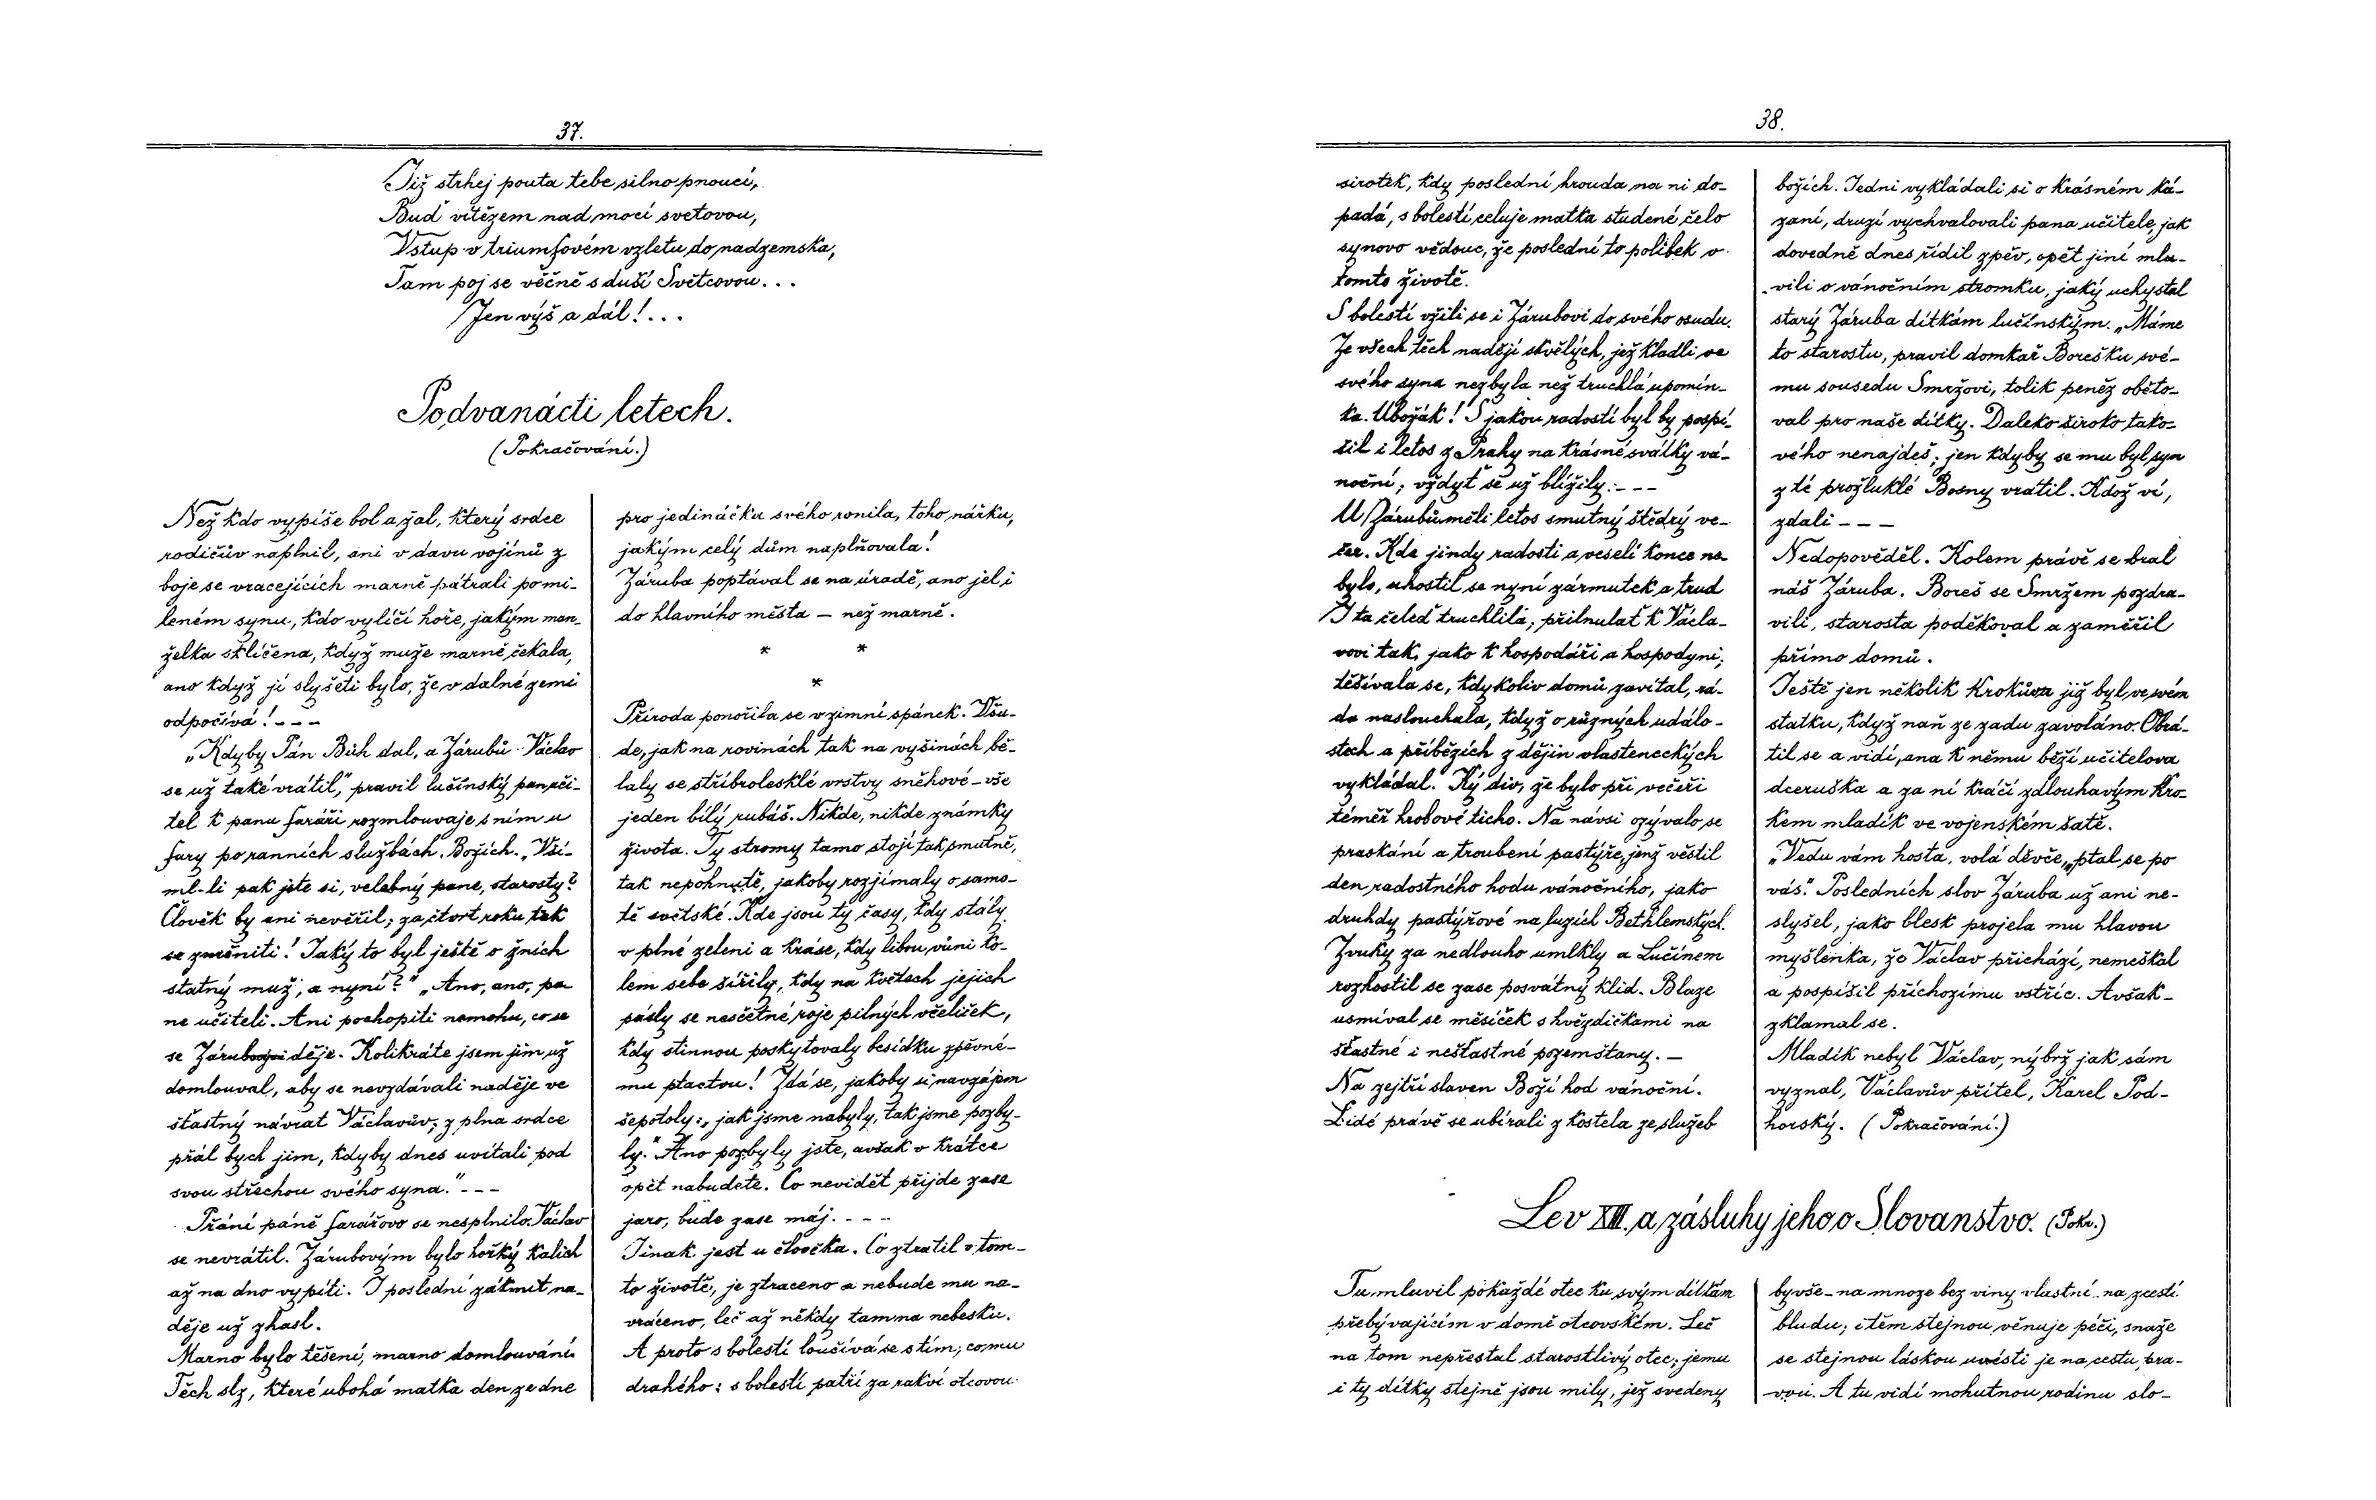 37.
Již strhej pouta tebe silno pnoucí,
Buď vítězem nad mocí světovou,
Vstup v triumfovém vzletu do nadzemska,
Tam poj se věčně s duší Světcovou...
Jen výš a dál!...
Po dvanácti letech.
(Pokračování.)
Než kdo vypíše bol a žal, který srdce
rodičův naplnil, ani v davu vojínů z
boje se vracejících marně pátrali po mi-
leném synu, kdo vylíčí hoře, jakým man-
želka sklíčena, když muže marně čekala,
ano když jí slyšeti bylo, že v dalné zemi
odpočívá! - - -
„Kdyby Pán Bůh dal, a Zárubů Václav
se už také vrátil", pravil lučínský pan uči-
tel k panu faráři rozmlouvaje s ním u
fary po ranních službách Božích. „Vši-
ml-li pak jste si, velebný pane, starosty?
Člověk by ani nevěřil; za čtvrt roku tak
se změniti! Jaký to byl ještě o žních
statný muž, a nyní?" „Ano, ano, pa-
ne učiteli. Ani pochopiti nemohu, co se
se Zárubou děje. Kolikráte jsem jim už
domlouval, aby se nevzdávali naděje ve
šťastný návrat Václavův; z plna srdce
přál bych jim, kdyby dnes uvítali pod
svou střechou svého syna." - - -
Přání páně farářovo se nesplnilo. Václav
se nevrátil. Zárubovým bylo hořký kalich
až na dno vypíti. I poslední zákmit na-
děje už zhasl.
Marno bylo těšení, marno domlouvání.
Těch slz, které ubohá matka den ze dne
pro jedináčka svého ronila, toho nářku,
jakým celý dům naplňovala!
Záruba poptával se na úradě, ano jel i
do hlavního města – než marně.
* *
*
Příroda ponořila se v zimní spánek. Všu-
de, jak na rovinách tak na vyšinách bě-
laly se stříbrolesklé vrstvy sněhové – vše
jeden bílý rubáš. Nikde, nikde známky
života. Ty stromy tamo stojí tak smutně,
tak nepohnutě, jakoby rozjímaly o samo-
tě světské. Kde jsou ty časy, kdy stály
v plné zeleni a kráse, kdy libou vůni ko-
lem sebe šířily, kdy na květech jejich
pásly se nesčetné roje pilných včeliček,
kdy stinnou poskytovaly besídku zpěvné-
mu ptactou! Zdá se, jakoby si navzájem
šepotoly: „jak jsme nabyly, tak jsme pozby-
ly." Ano pozbyly jste, avšak v krátce
opět nabudete. Co nevidět přijde zase
jaro, bude zase máj. - - -
Jinak jest u človčka. Co ztratil v tom-
to životě, je ztraceno a nebude mu na-
vráceno, leč až někdy tam na nebesku.
A proto s bolestí loučívá se s tím, co mu
drahého: s bolestí patří za rakví otcovou
38.
sirotek, kdy poslední hrouda na ni do-
padá, s bolestí celuje matka studené čelo
synovo vědouc, že poslední to polibek v
tomto životě.
S bolestí vžili se i Zárubovi do svého osudu.
Ze všech těch nadějí skvělých, jež kladli ve
svého syna nezbyla než truchlá upomín-
ka. Ubožák! S jakou radostí byl by pospí-
šil i letos z Prahy na krásné svátky vá-
noční; vždyť se už blížily. - - -
U Zárubů měli letos smutný štědrý ve-
čer. Kde jindy radosti a veselí konce ne-
bylo, uhostil se nyní zármutek a trud
I ta čeleď truchlila; přilnulať k Václa-
vovi tak, jako k hospodáři a hospodyni;
těšívala se, kdykoliv domů zavítal, rá-
da naslouchala, když o různých udalo-
stech a příbězích z dějin vlasteneckých
vykládal. Ký div, že bylo při večeři
téměř hrobové ticho. Na návsi ozývalo se
praskání a troubení pastýře, jenž věstil
den radostného hodu vánočního, jako
druhdy pastýřové na luzích Bethlemských.
Zvuky za nedlouho umlkly a Lučínem
rozhostil se zase posvátný klid. Blaze
usmíval se měsíček s hvězdičkami na
šťastné i nešťastné pozemšťany. –
Na zejtří slaven Boží hod vánoční.
Lidé právě se ubírali z kostela ze služeb
božích. Jedni vykládali si o krásném ká-
zaní, druzí vychvalovali pana učitele, jak
dovedně dnes řídil zpěv, opět jiní mlu-
vili o vánočním stromku, jaký uchystal
starý Záruba dítkám lučínským. „Máme
to starostu, pravil domkař Borešku své-
mu sousedu Smržovi, tolik peněz oběto-
val pro naše dítky. Daleko široko tako-
vého nenajdeš; jen kdyby se mu byl syn
z té prožluklé Bosny vrátil. Kdož ví,
zdali - - -
Nedopověděl. Kolem právě se bral
náš Záruba. Boreš se Smržem pozdra-
vili, starosta poděkoval a zaměřil
přímo domů.
Ještě jen několik kroků a již byl ve svém
statku, když naň ze zadu zavoláno. Obrá-
til se a vidí, ana k němu běží učitelova
dceruška a za ní kráčí zdlouhavým kro-
kem mladík ve vojenském šatě.
„Vedu vám hosta, volá děvče, „ptal se po
vás." Posledních slov Záruba už ani ne-
slyšel, jako blesk projela mu hlavou
myšlénka, že Václav přichází, nemeškal
a pospíšil příchozímu vstříc. Avšak –
zklamal se.
Mladík nebyl Václav, nýbrž jak sám
vyznal, Václavův přítel, Karel Pod-
horský. (Pokračování.)
Lev XIII. a zásluhy jeho o Slovanstvo. (Pokr.)
Tu mluvil pokaždé otec ku svým dítkám
přebývajícím v domě otcovském. Leč
na tom nepřestal starostlivý otec; jemu
i ty dítky stejně jsou milý, jež svedeny
byvše – na mnoze bez viny vlastní – na zcestí
bludu; i těm stejnou věnuje péči, snaže
se stejnou láskou uvésti je na cestu pra-
vou. A tu vidí mohutnou rodinu slo-